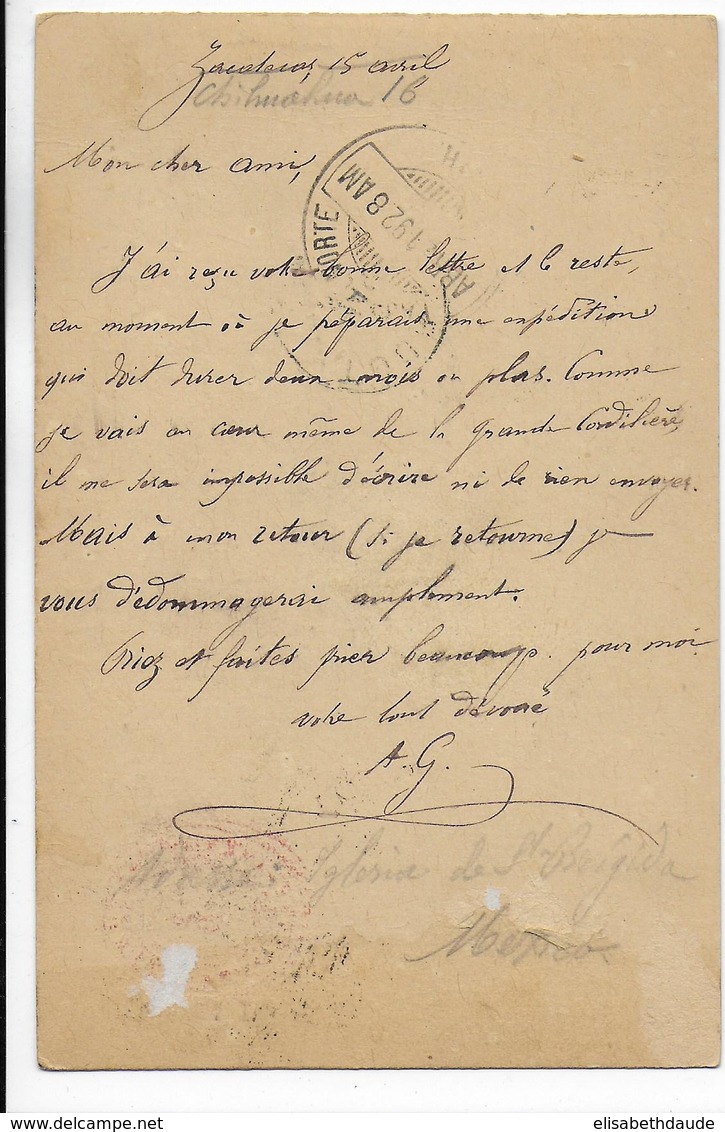 Zacatecas, 15 avril
Chihuahua 16
Mon cher ami,
NORTE
8 AM
192
J'ai reçu votre bonne lettre et le reste,
au moment où je préparais une expédition
qui doit durer deux mois ou plus. Comme
je vais au cœur même de la grande Cordilière,
il me sera impossible d'écrire ni de rien envoyer.
Mais à mon retour (si je retourne) je
vous dédommagerai amplement.
Priez et faites prier beaucoup pour moi
votre tout dévoué
A. G.
Iglesia de St Brigida
Mexico.
elisabethdaude